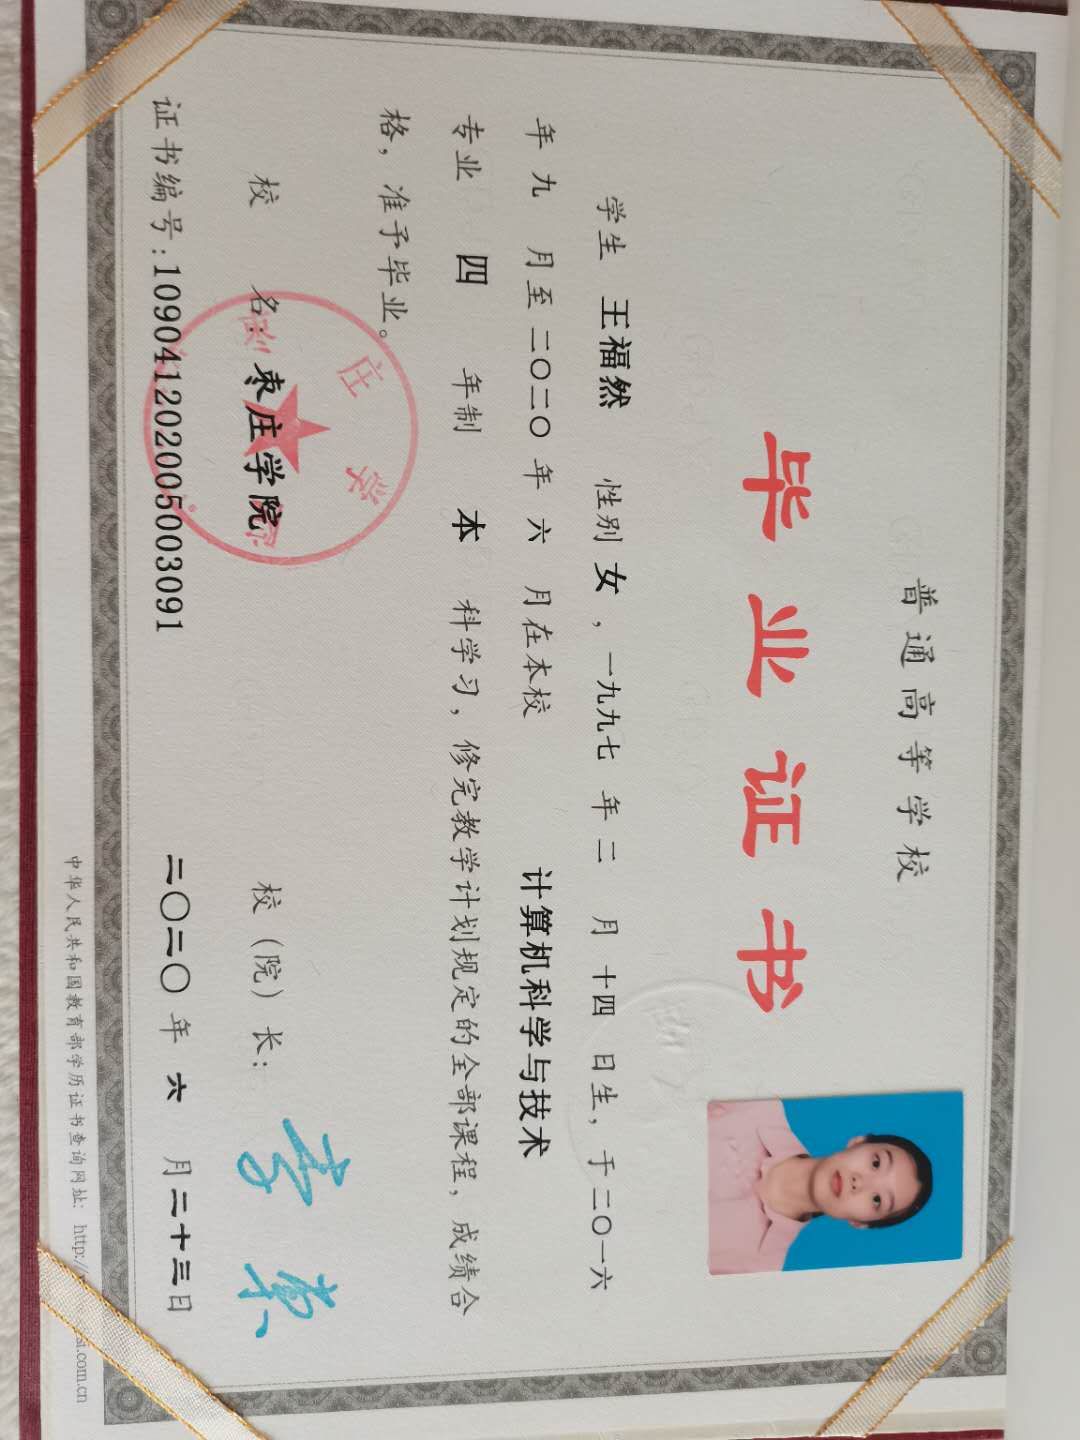 普通高等学校
毕业证书
学生 王福然 性别 女，一九九七 年 二 月 十四 日生，于二〇一六
年 九 月至 二〇二〇 年 六 月在本校 计算机科学与技术
专业 四 年制 本 科学习，修完教学计划规定的全部课程，成绩合
格，准予毕业。
校 名：枣庄学院 校（院）长：
证书编号：109041202005003091 二〇二〇 年 六 月二十三日
中华人民共和国教育部学历证书查询网址：http://
si.com.cn